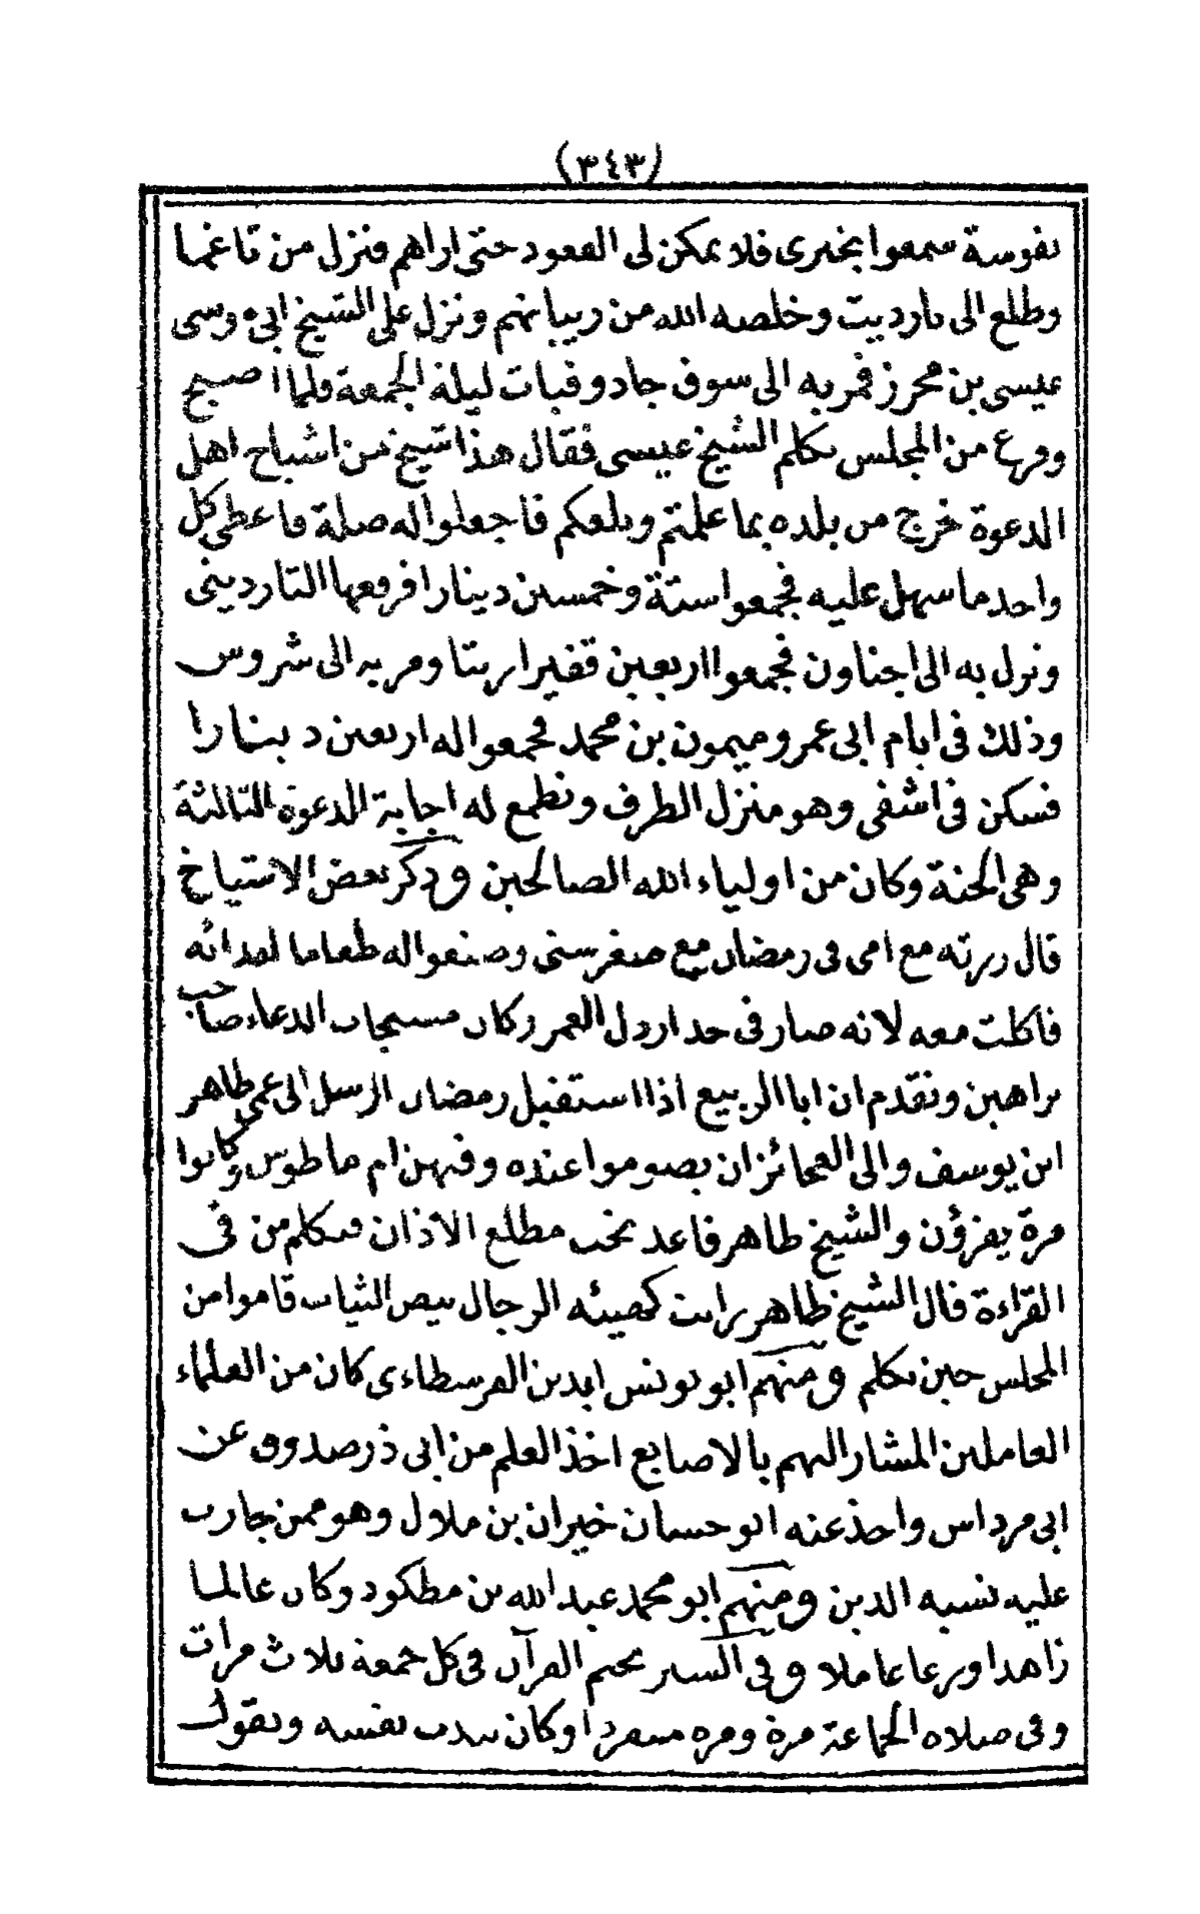 (٣٤٣)
نفوسة سمعوا بخبرى فلا يمكن لى القعود حتى اراهم فنزل من تاغما
وطلع الى تارديت وخلصه الله من ريبانهم ونزل على الشيخ ابى موسى
عيسى بن محرز فمر به الى سوق جادو فبات ليلة الجمعة فلما اصبح
وفرغ من المجلس تكلم الشيخ عيسى فقال هذا شيخ من اشياخ اهل
الدعوة خرج من بلده بما علمتم وبلغكم فاجعلوا له صلة فاعطى كل
واحد ما سهل عليه فجمعوا ستة وخمسين دينارا فرفعها التاردينى
ونزل به الى اجناون فجمعوا اربعين قفيرا زيتا ومر به الى شروس
وذلك فى ايام ابى عمرو ميمون بن محمد فجمعوا له اربعين دينارا
فسكن فى اشفى وهو منزل الطرف ونطمع له اجابة الدعوة الثالثة
وهى الجنة وكان من اولياء الله الصالحين وذكر بعض الاشياخ
قال زرته مع امى فى رمضان مع صغر سنى وصنعوا له طعاما لغدائه
فاكلت معه لانه صار فى حد ارذل العمر وكان مستجاب الدعاء صاحب
براهين وتقدم ان ابا الربيع اذا استقبل رمضان ارسل الى عمى طاهر
ابن يوسف والى العجائز ان يصوموا عنده وفيهن ام ماطوس وكانوا
مرة يقرؤن والشيخ طاهر قاعد تحت مطلع الاذان فتكلم من فى
القراءة قال الشيخ طاهر رايت كهيئه الرجال بيض الثياب قاموا من
المجلس حين تكلم ومنهم ابو يونس ابدين الفرسطاءى كان من العلماء
العاملين المشار اليهم بالاصابع اخذ العلم من ابى ذر صدوق عن
ابى مرداس واخذ عنه ابو حسان خيران بن ملال وهو ممن جازت
عليه نسبه الدين ومنهم ابو محمد عبد الله بن مطكود وكان عالما
زاهدا ورعا عاملا وفى السير يختم القرآن فى كل جمعة ثلاث مرات
وفى صلاه الجماعة مرة ومره منفردا وكان يندب نفسه ويقول